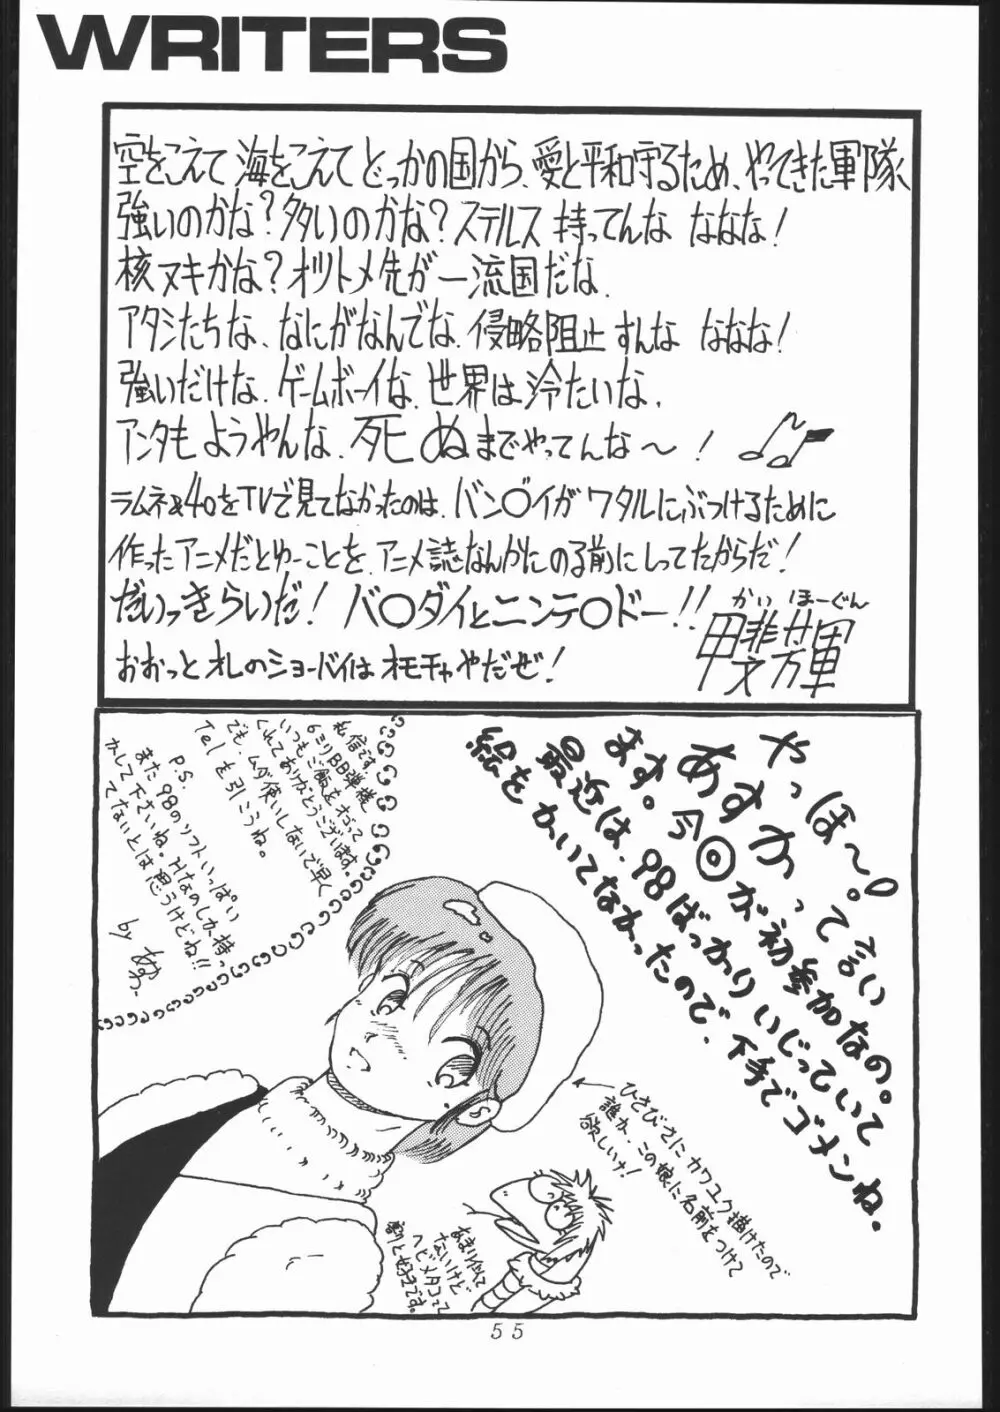 WRITERS
空をこえて 海をこえて どっかの国から、愛と平和守るため、やってきた軍隊
強いのかな？多いのかな？ステルス 持ってんな ななな！
核ヌキかな？オリトメ先が一流国だな、
アタシたちな、なにがなんでな、侵略阻止すんな ななな！
強いだけな、ゲームボーイな、世界は冷たいな、
アンタも ようやんな、死ぬまでやってんな〜！
ラムネ&40をTVで見てなかったのは、バン〇イが ワタルにぶつけるために
作ったアニメだとゆーことを、アニメ誌なんかにのる前にしってたからだ！
だいっきらいだ！バ〇ダイとニンテ〇ドー！！
かい ほーぐん
おおっと オレのショーバイは オモチャやだぜ！
やっほ〜！
あすか。って言い
ます。今回が初参加なの。
最近は、98ばっかりいじっていて
絵をかいてなかったので、下手でゴメンね。
私信です。
6ミリBB弾様
いつもご飯をおごって
くれてありがとうございます。
でも、ムダ使いしないで早く
Telを引こうね。
P.S.
また98のソフトいっぱい
かして下さいね。Hなのしか持っ
てないとは思うけどね!!
by あすか。
ひさびさに カワユク描けたので
誰か、この娘に名前をつけて
欲しいナ！
あまり似て
ないけど
ヘビメタコって
割と好きです。
55